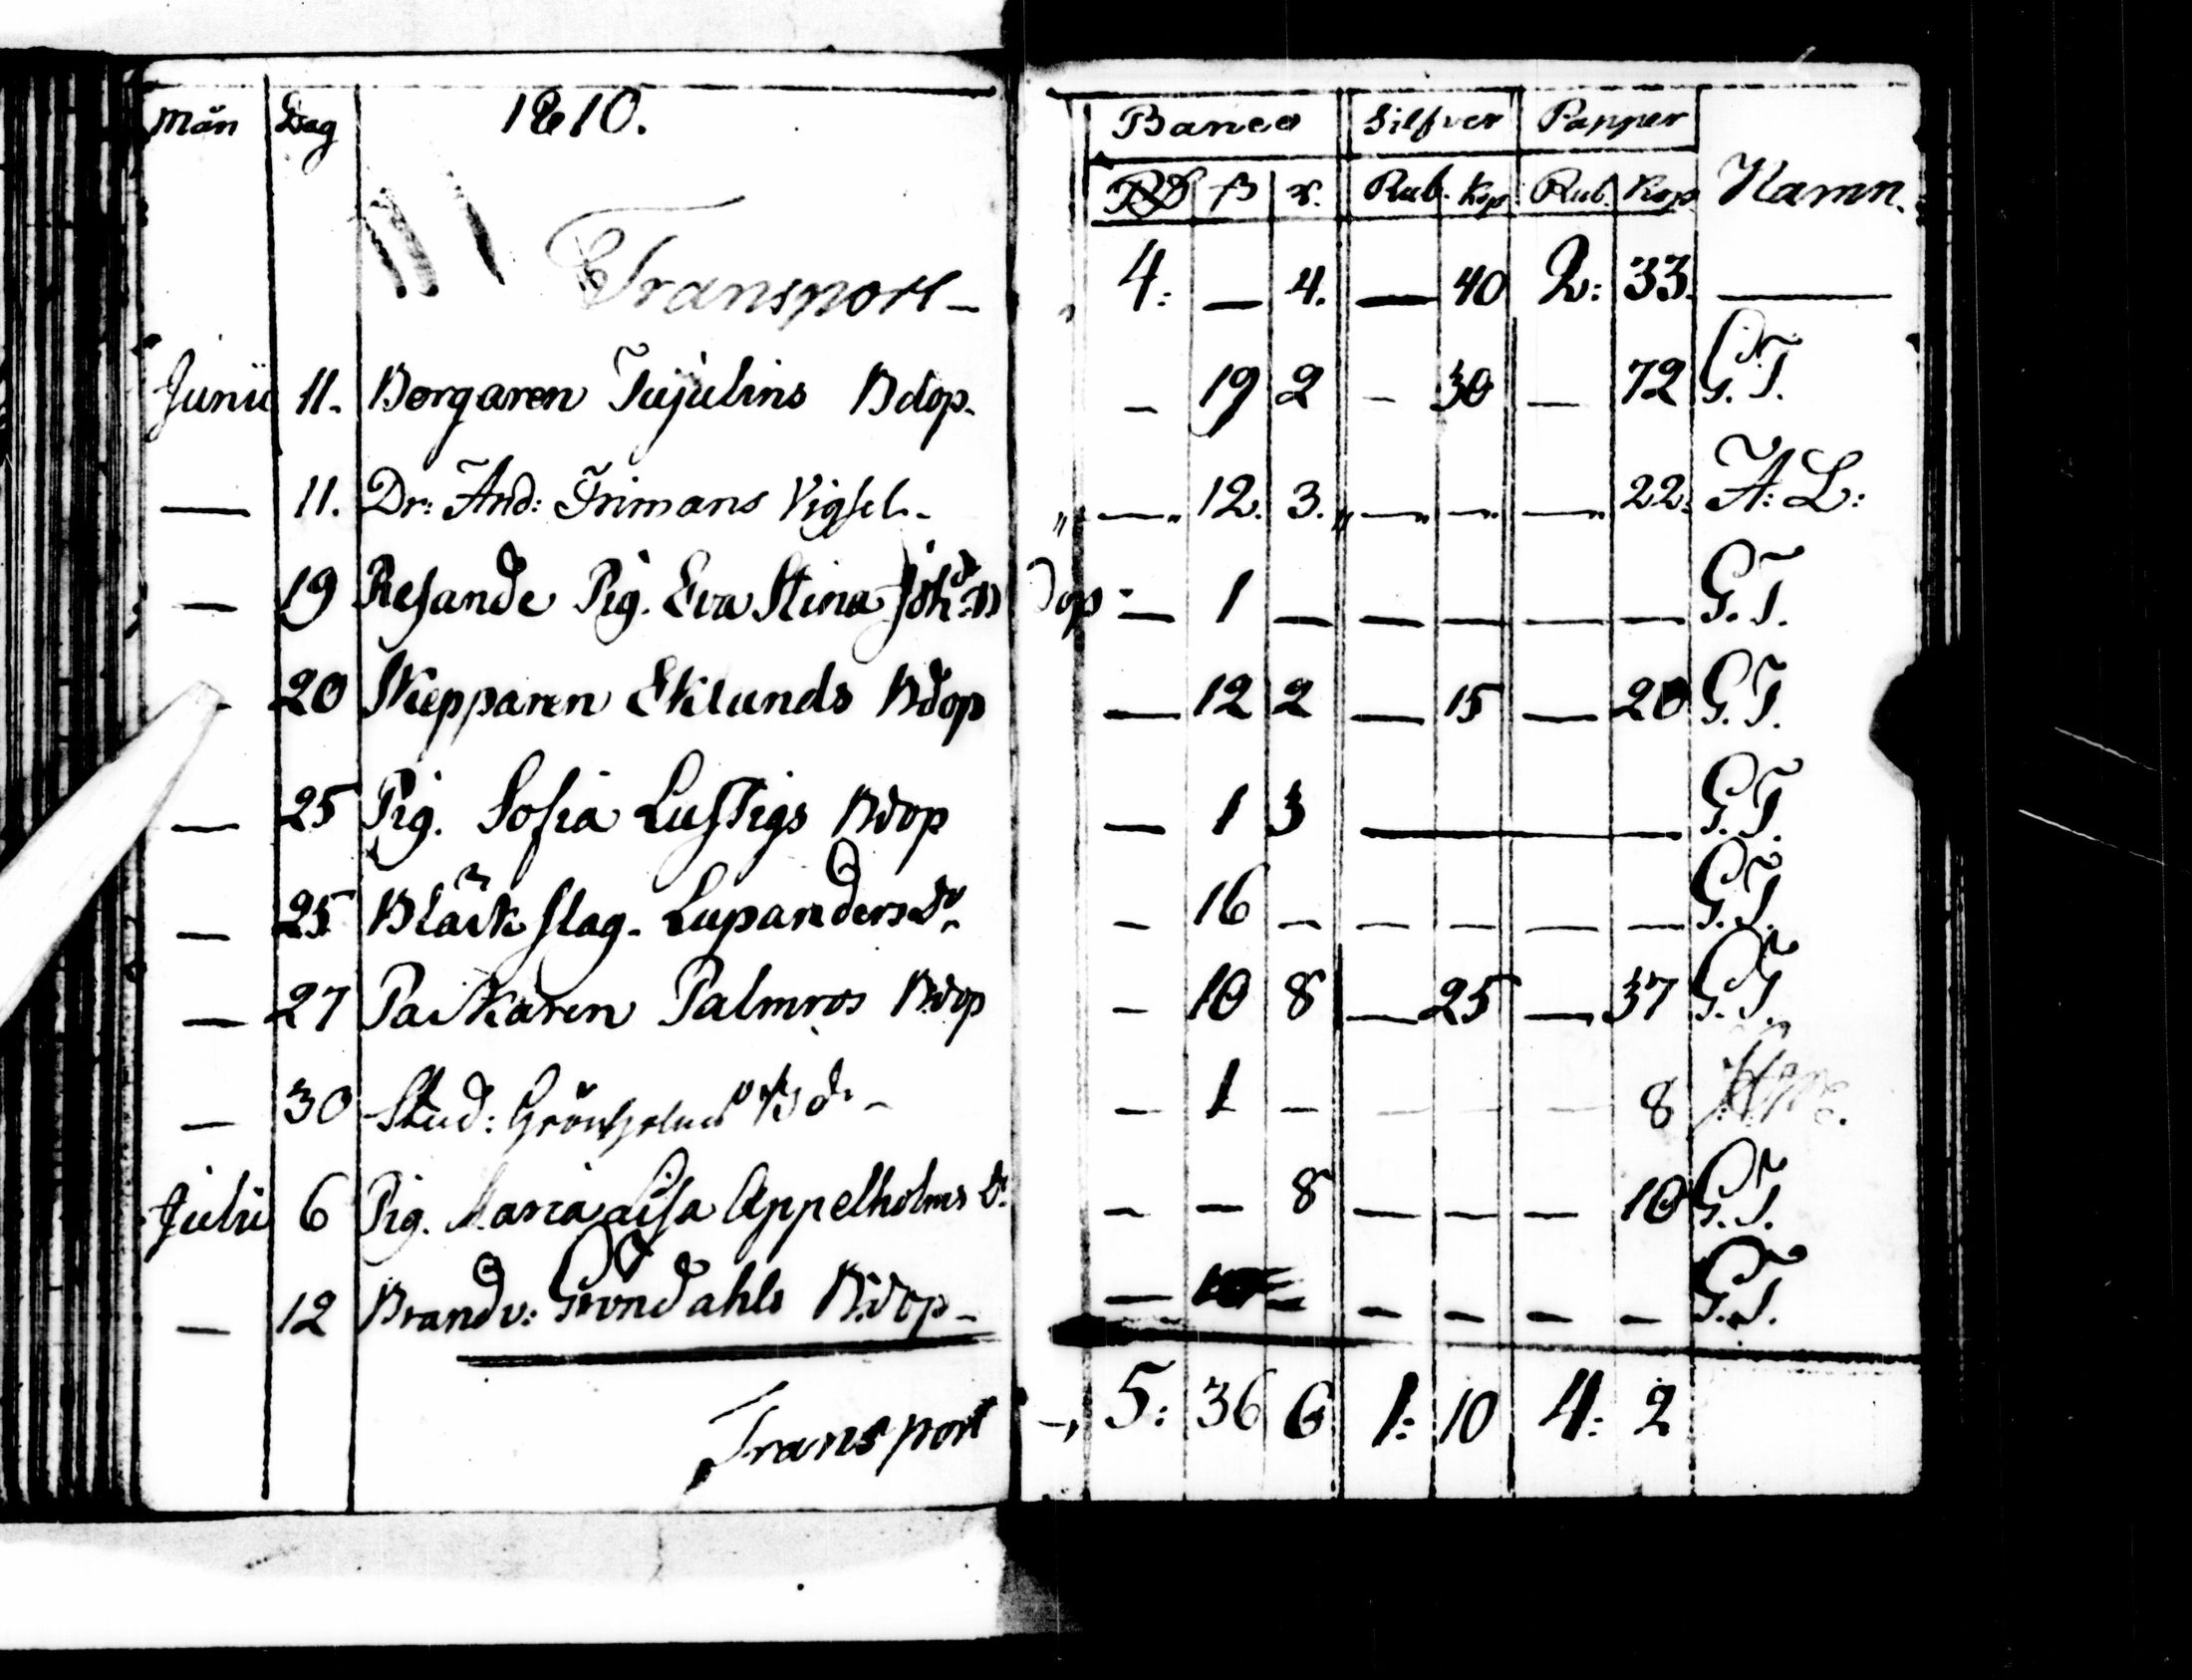 Mån Dag 1810. Banco Silfver Papper Namn.
RD ß r. Rub. Kop Rub. Kop
Transport — 4: — 4. — 40 2: 33. —
Junii 11. Borgaren Tujulins Bdop. — 19 2 — 30 — 72 G.T.
— 11. Dr: And: Frimans Vigsel. — — 12. 3. — — — 22. A: L:
— 19 Resande Pig. Eva Stina Joh: Dop — 1 — — — — — G.T.
— 20 Skepparen Eklunds Bdop — 12 2 — 15 — 20 G.T.
— 25 Pig. Sofia Lustigs Bdop — 1 3 — G.T.
— 25 Bläck slag. Lupanders do. — 16 — — — — — G.T.
— 27 Packaren Palmros Bdop — 10 8 — 25 — 37 G.T.
— 30 Stud: Grönholms — 1 — — — — 8
Julii 6 Pig. Maria Lisa Appelholms do. — — 8 — — — 10 G.T.
— 12 Brandv: Gröndahls B:dop — — — — — — G.T.
Transport — 5: 36 6 1: 10 4: 2